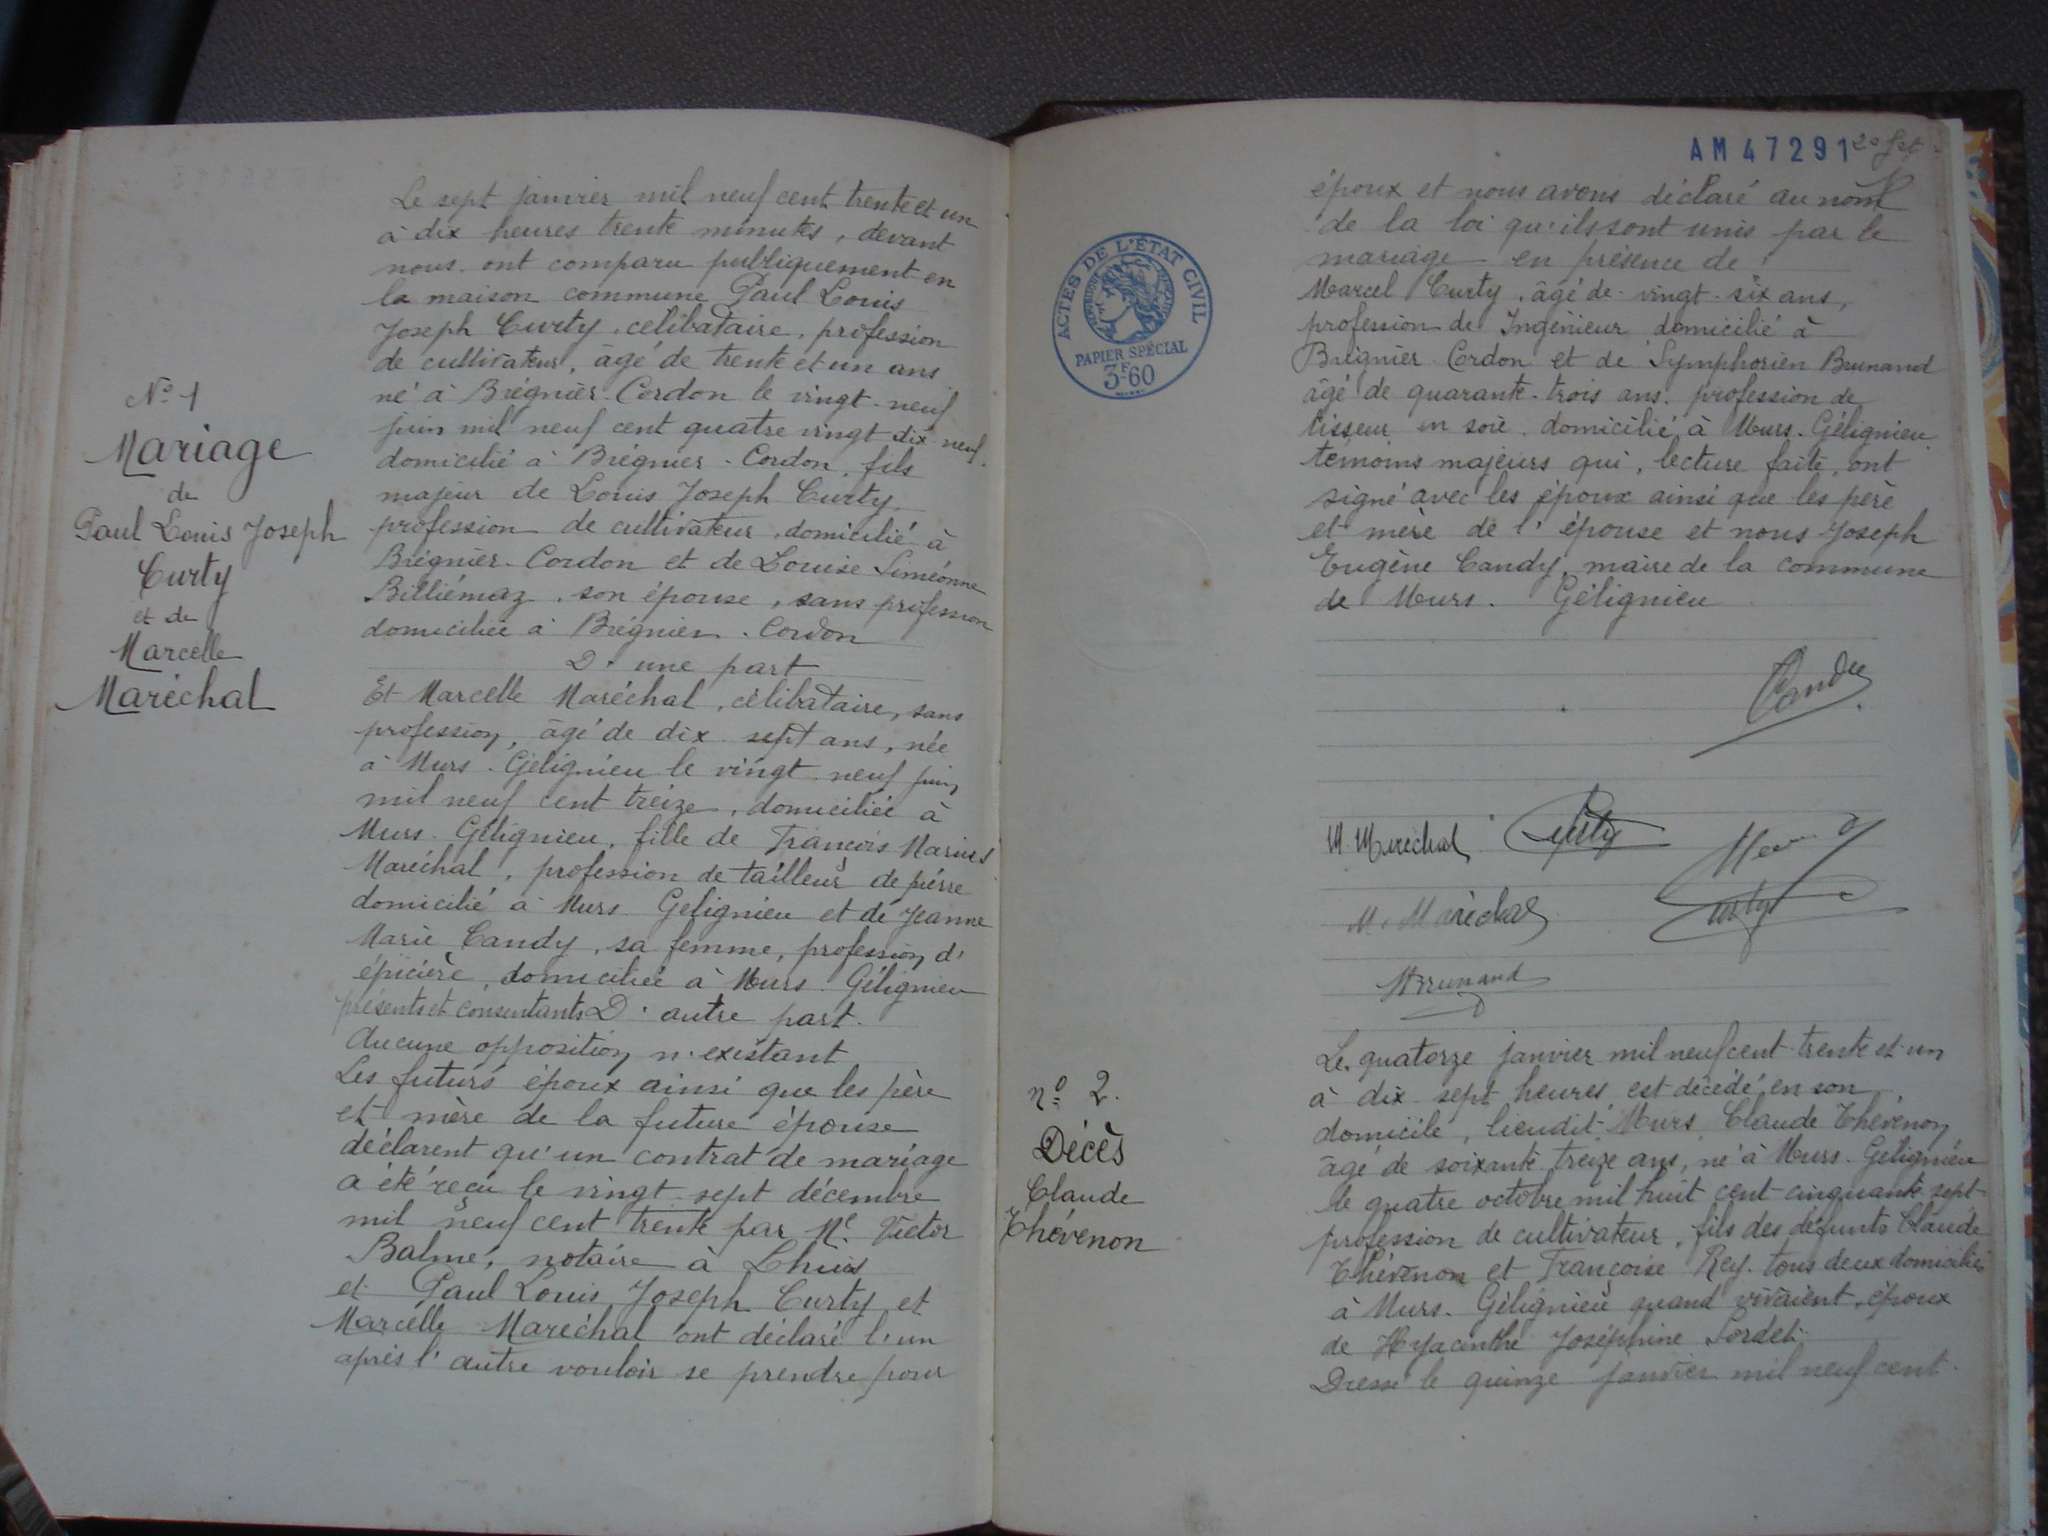 Le sept janvier mil neuf cent trente et un
à dix heures trente minutes, devant
nous ont comparu publiquement en
la maison commune Paul Louis
Joseph Curty, célibataire, profession
de cultivateur, âgé de trente et un ans
né à Brégnier-Cordon le vingt-neuf
juin mil neuf cent quatre vingt dix neuf.
domicilié à Brégnier-Cordon, fils
majeur de Louis Joseph Curty,
profession de cultivateur, domicilié à
Brégnier-Cordon et de Louise Siméonne
Billiémaz, son épouse, sans profession
domiciliée à Brégnier-Cordon
D'une part
Et Marcelle Maréchal, célibataire, sans
profession, âgé de dix sept ans, née
à Murs-Gélignieu le vingt-neuf juin
mil neuf cent treize, domiciliée à
Murs-Gélignieu, fille de François Marius
Maréchal, profession de tailleur de pierre
domicilié à Murs Gélignieu et de Jeanne
Marie Candy, sa femme, profession d'
épicière, domiciliée à Murs-Gélignieu
présents et consentants D'autre part.
Aucune opposition n'existant
Les futurs époux ainsi que les père
et mère de la future épouse
déclarent qu'un contrat de mariage
a été reçu le vingt-sept décembre
mil neuf cent trente par Me Victor
Balme, notaire à Lhuis
et Paul Louis Joseph Curty et
Marcelle Maréchal ont déclaré l'un
après l'autre vouloir se prendre pour
No 1
Mariage
de
Paul Louis Joseph
Curty
et de
Marcelle
Maréchal
AM 47291
ACTES DE L'ÉTAT CIVIL
PAPIER SPÉCIAL
3F60
époux et nous avons déclaré au nom
de la loi qu'ils sont unis par le
mariage en présence de
Marcel Curty, âgé de vingt-six ans,
profession de Ingénieur domicilié à
Brégnier Cordon et de Symphorien Brunand
âgé de quarante-trois ans, profession de
tisseur en soie, domicilié à Murs-Gélignieu
témoins majeurs qui, lecture faite, ont
signé avec les époux ainsi que les père
et mère de l'épouse et nous Joseph
Eugène Candy, maire de la commune
de Murs-Gélignieu
Candy
M. Maréchal Curty
M. Maréchal Curty
Brunand
no 2.
Décès
Claude
Thévenon
Le quatorze janvier mil neuf cent trente et un
à dix-sept heures est décédé en son
domicile, lieudit Murs, Claude Thévenon
âgé de soixante treize ans, né à Murs-Gélignieu
le quatre octobre mil huit cent cinquante sept
profession de cultivateur, fils des défunts Claude
Thévenon et Françoise Rey, tous deux domiciliés
à Murs-Gélignieu quand vivaient, époux
de Hyacinthe Joséphine Sordet.
Dressé le quinze janvier mil neuf cent